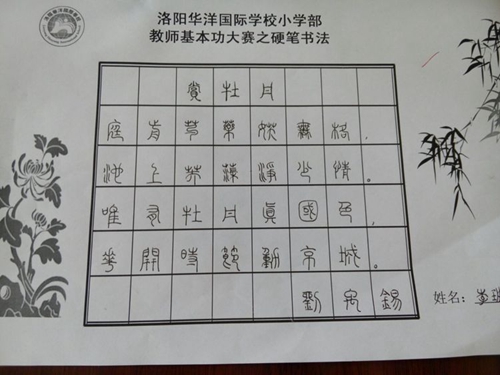 洛阳华洋国际学校小学部
教师基本功大赛之硬笔书法
賞牡丹
庭前芍藥妖無格，
池上芙蕖淨少情。
唯有牡丹眞國色，
花開時節動京城。
劉禹錫
姓名：